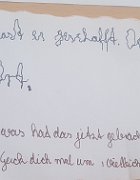 hast es geschafft. D
was hat das jetzt gebrach
Guck dich mal um, vielleich